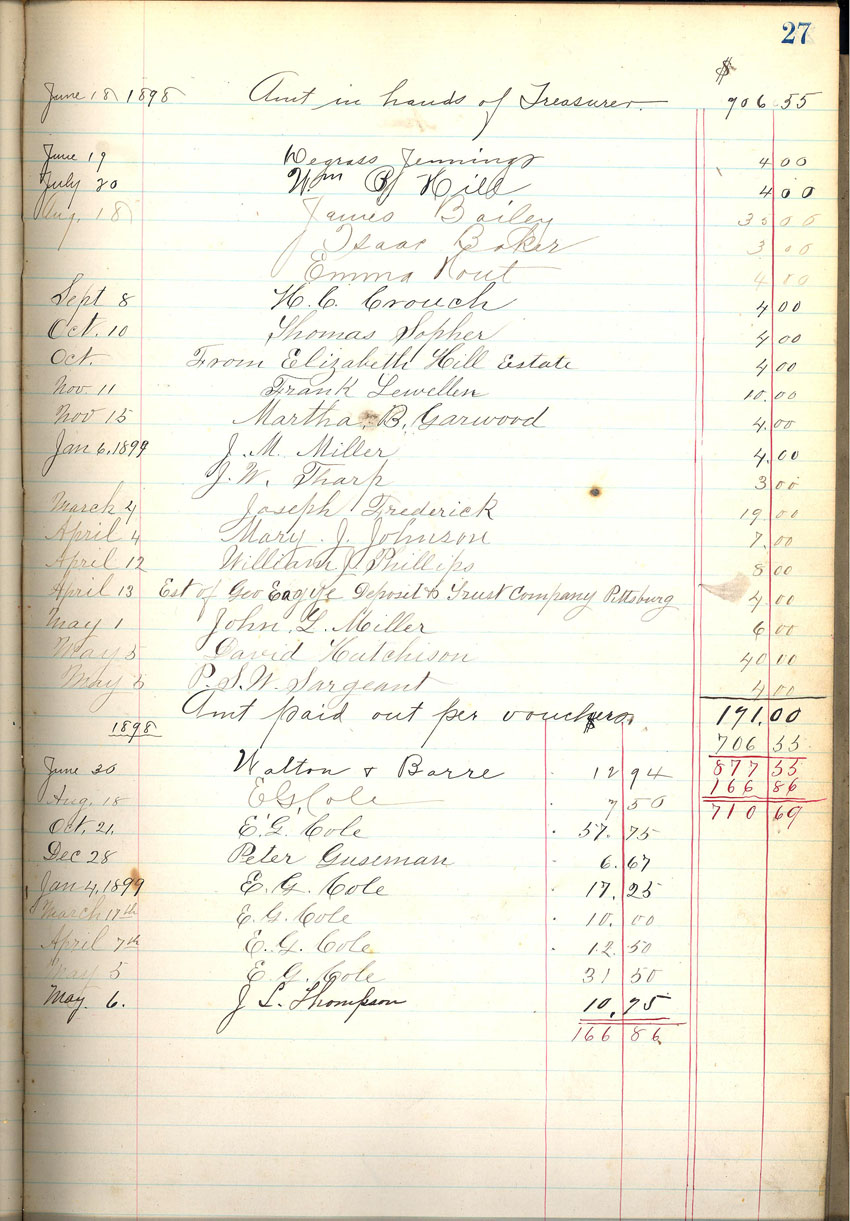 27
$
June 18 1898 Amt in hands of Treasurer 706.55
June 19 Degrass Jennings 4 00
July 20 Wm B Hill 4 00
Aug. 18 James Bailey 35 00
Isaac Baker 3 00
Emma Rout 4 00
Sept 8 H. C. Crouch 4 00
Oct. 10 Thomas Sopher 4 00
Oct. From Elizabeth Hill Estate 4 00
Nov. 11 Frank Lewellen 10.00
Nov 15 Martha. B. Garwood 4.00
Jan 6, 1899 J. M. Miller 4.00
J. W. Tharp 3 00
March 4 Joseph Frederick 19 00
April 4 Mary. J. Johnson 7.00
April 12 William J Phillips 8 00
April 13 Est of Geo Deposit & Trust Company Pittsburg 4 00
May 1 John. L. Miller 6 00
May 5 David Hutchison 40 00
May 5 P. S. W. Sargeant 4 00
Amt paid out per vouchers $ 171.00
1898 706 55
June 20 Walton & Barre 12 94 877 55
166 86
Aug. 18 E G. Cole 7 50 710 69
Oct 21. E. G. Cole 57. 75
Dec 28 Peter Guseman 6.67
Jan 4, 1899 E. G. Cole 17. 25
March 17th E. G. Cole 10. 00
April 7th E. G. Cole 12. 50
May 5 E. G. Cole 31 50
May. 6. J L. Thompson 10. 75
166 86